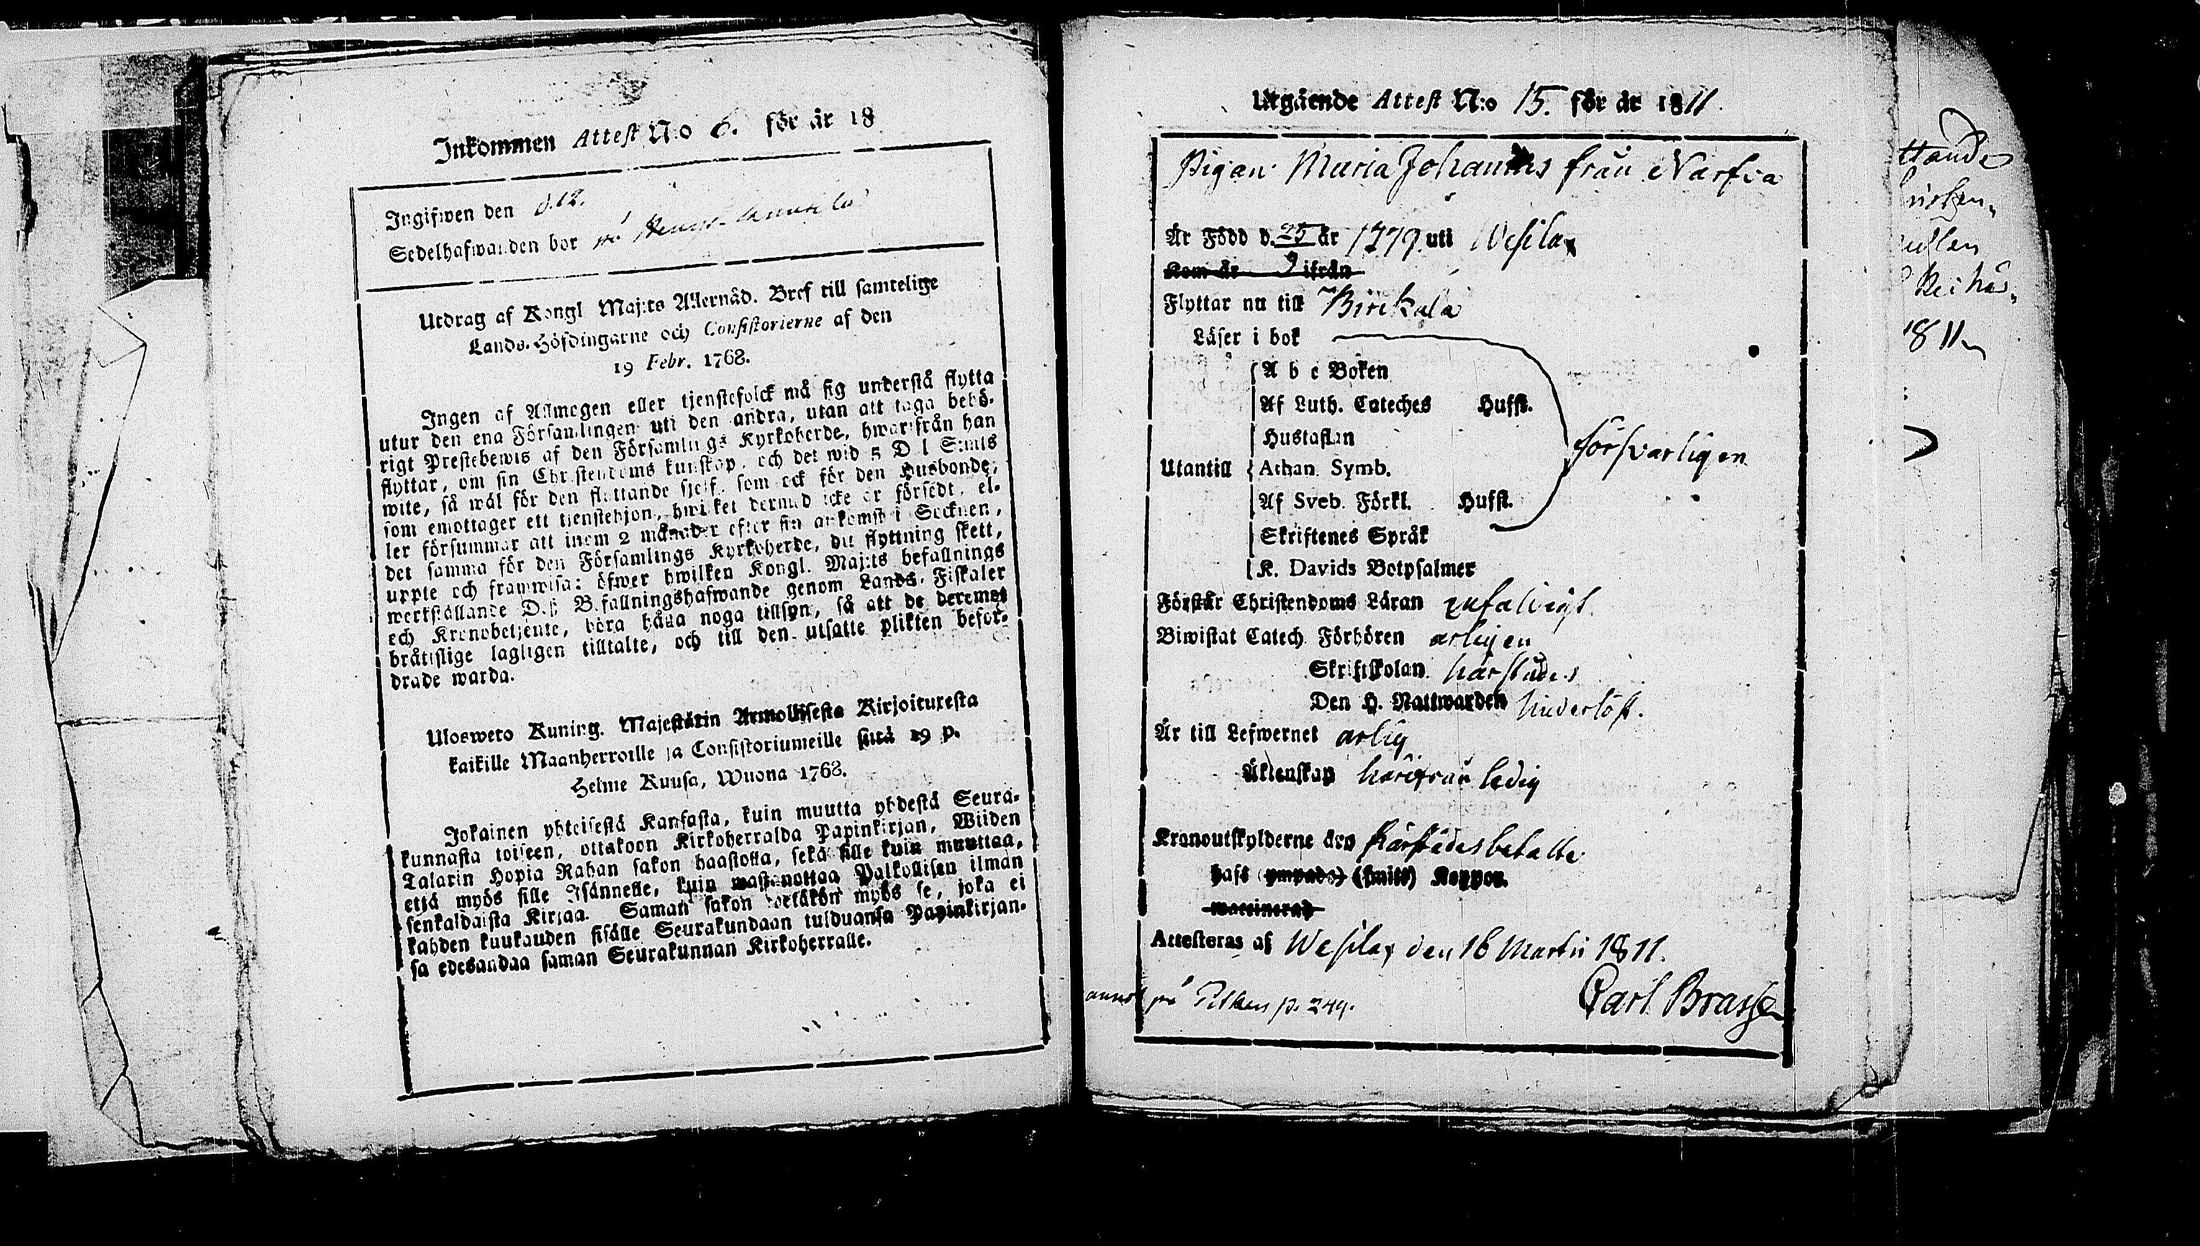 Inkommen Attest N:o 6. för år 18
Ingifwen den d. 12.
Sedelhafwanden bor på
Utdrag af Kongl Maj:ts Allernåd. Bref till samtelige
Lands-Höfdingarne och Consistorierne af den
19 Febr. 1768.
Ingen af Allmogen eller tjenstefolck må sig understå flytta
utur den ena Församlingen uti den andra, utan att taga behö-
rigt Prestebewis af den Församlings Kyrkoherde, hwarifrån han
flyttar, om sin Christendoms kunskap, och det wid 5 D l S:mts
wite, så wäl för den flyttande sjelf, som ock för den Husbonde,
som emottager ett tjenstehjon, hwilket dermed icke är försedt, el-
ler försummar att inom 2 månader efter sin ankomst i Socknen,
det samma för den Församlings Kyrkoherde, dit flyttning skett,
uppte och framwisa: öfwer hwilken Kongl. Maj:ts befallnings
werkställande D:ß Befallningshafwande genom Lands-Fiskaler
och Kronobetjente, böra hålla noga tillsyn, så att de deremot
bråttslige lagligen tilltalte, och till den utsatte plikten befor-
drade warda.
Ulosweto Kuning. Majestätin Armollisesta Kirjoituxesta
kaikille Maanherroille ja Consistoriumeille siitä 19 p.
Helme Kuusa, Wuona 1768.
Jokainen yhteisestä Kansasta, kuin muutta yhdestä Seura-
kunnasta toiseen, ottakoon Kirkoherralda Papinkirjan, Wiiden
Talarin Hopia Rahan sakon haastolla, sekä sille kuin muuttaa,
että myös sille Isännelle, kuin wastanottaa Palkollisen ilman
senkaldaista Kirjaa. Saman sakon wetäkön myös se, joka ei
kahden kuukauden sisälle Seurakundaan tulduansa Papinkirjan-
sa edesandaa saman Seurakunnan Kirkoherralle.
Utgående Attest N:o 15. för år 1811
Pigan Maria Johansds från Narfva
Är Född d. 25 år 1779 uti Wesilax
Kom år 9 ifrån
Flyttar nu till Birkala
Läser i bok
A b c Boken
Af Luth. Cateches Hufst.
Hustaflan
Utantill Athan. Symb. försvarligen
Af Sveb. Förkl. Hufst.
Skriftenes Språk
K. Davids Botpsalmer
Förstår Christendoms Läran enfaldigt
Biwistat Catech. Förhören årligen
Skriftskolan härstädes
Den H. Nattwarden
Är till Lefwernet ärlig
Äktenskap härifrån ledig
Kronoutskylderne äro härstädes betalte
haft (ympade) (smitt) Koppor.
waccinerad
Attesteras af Wesilax den 16 Martii 1811.
Carl Brasse
på p. 249.
1811